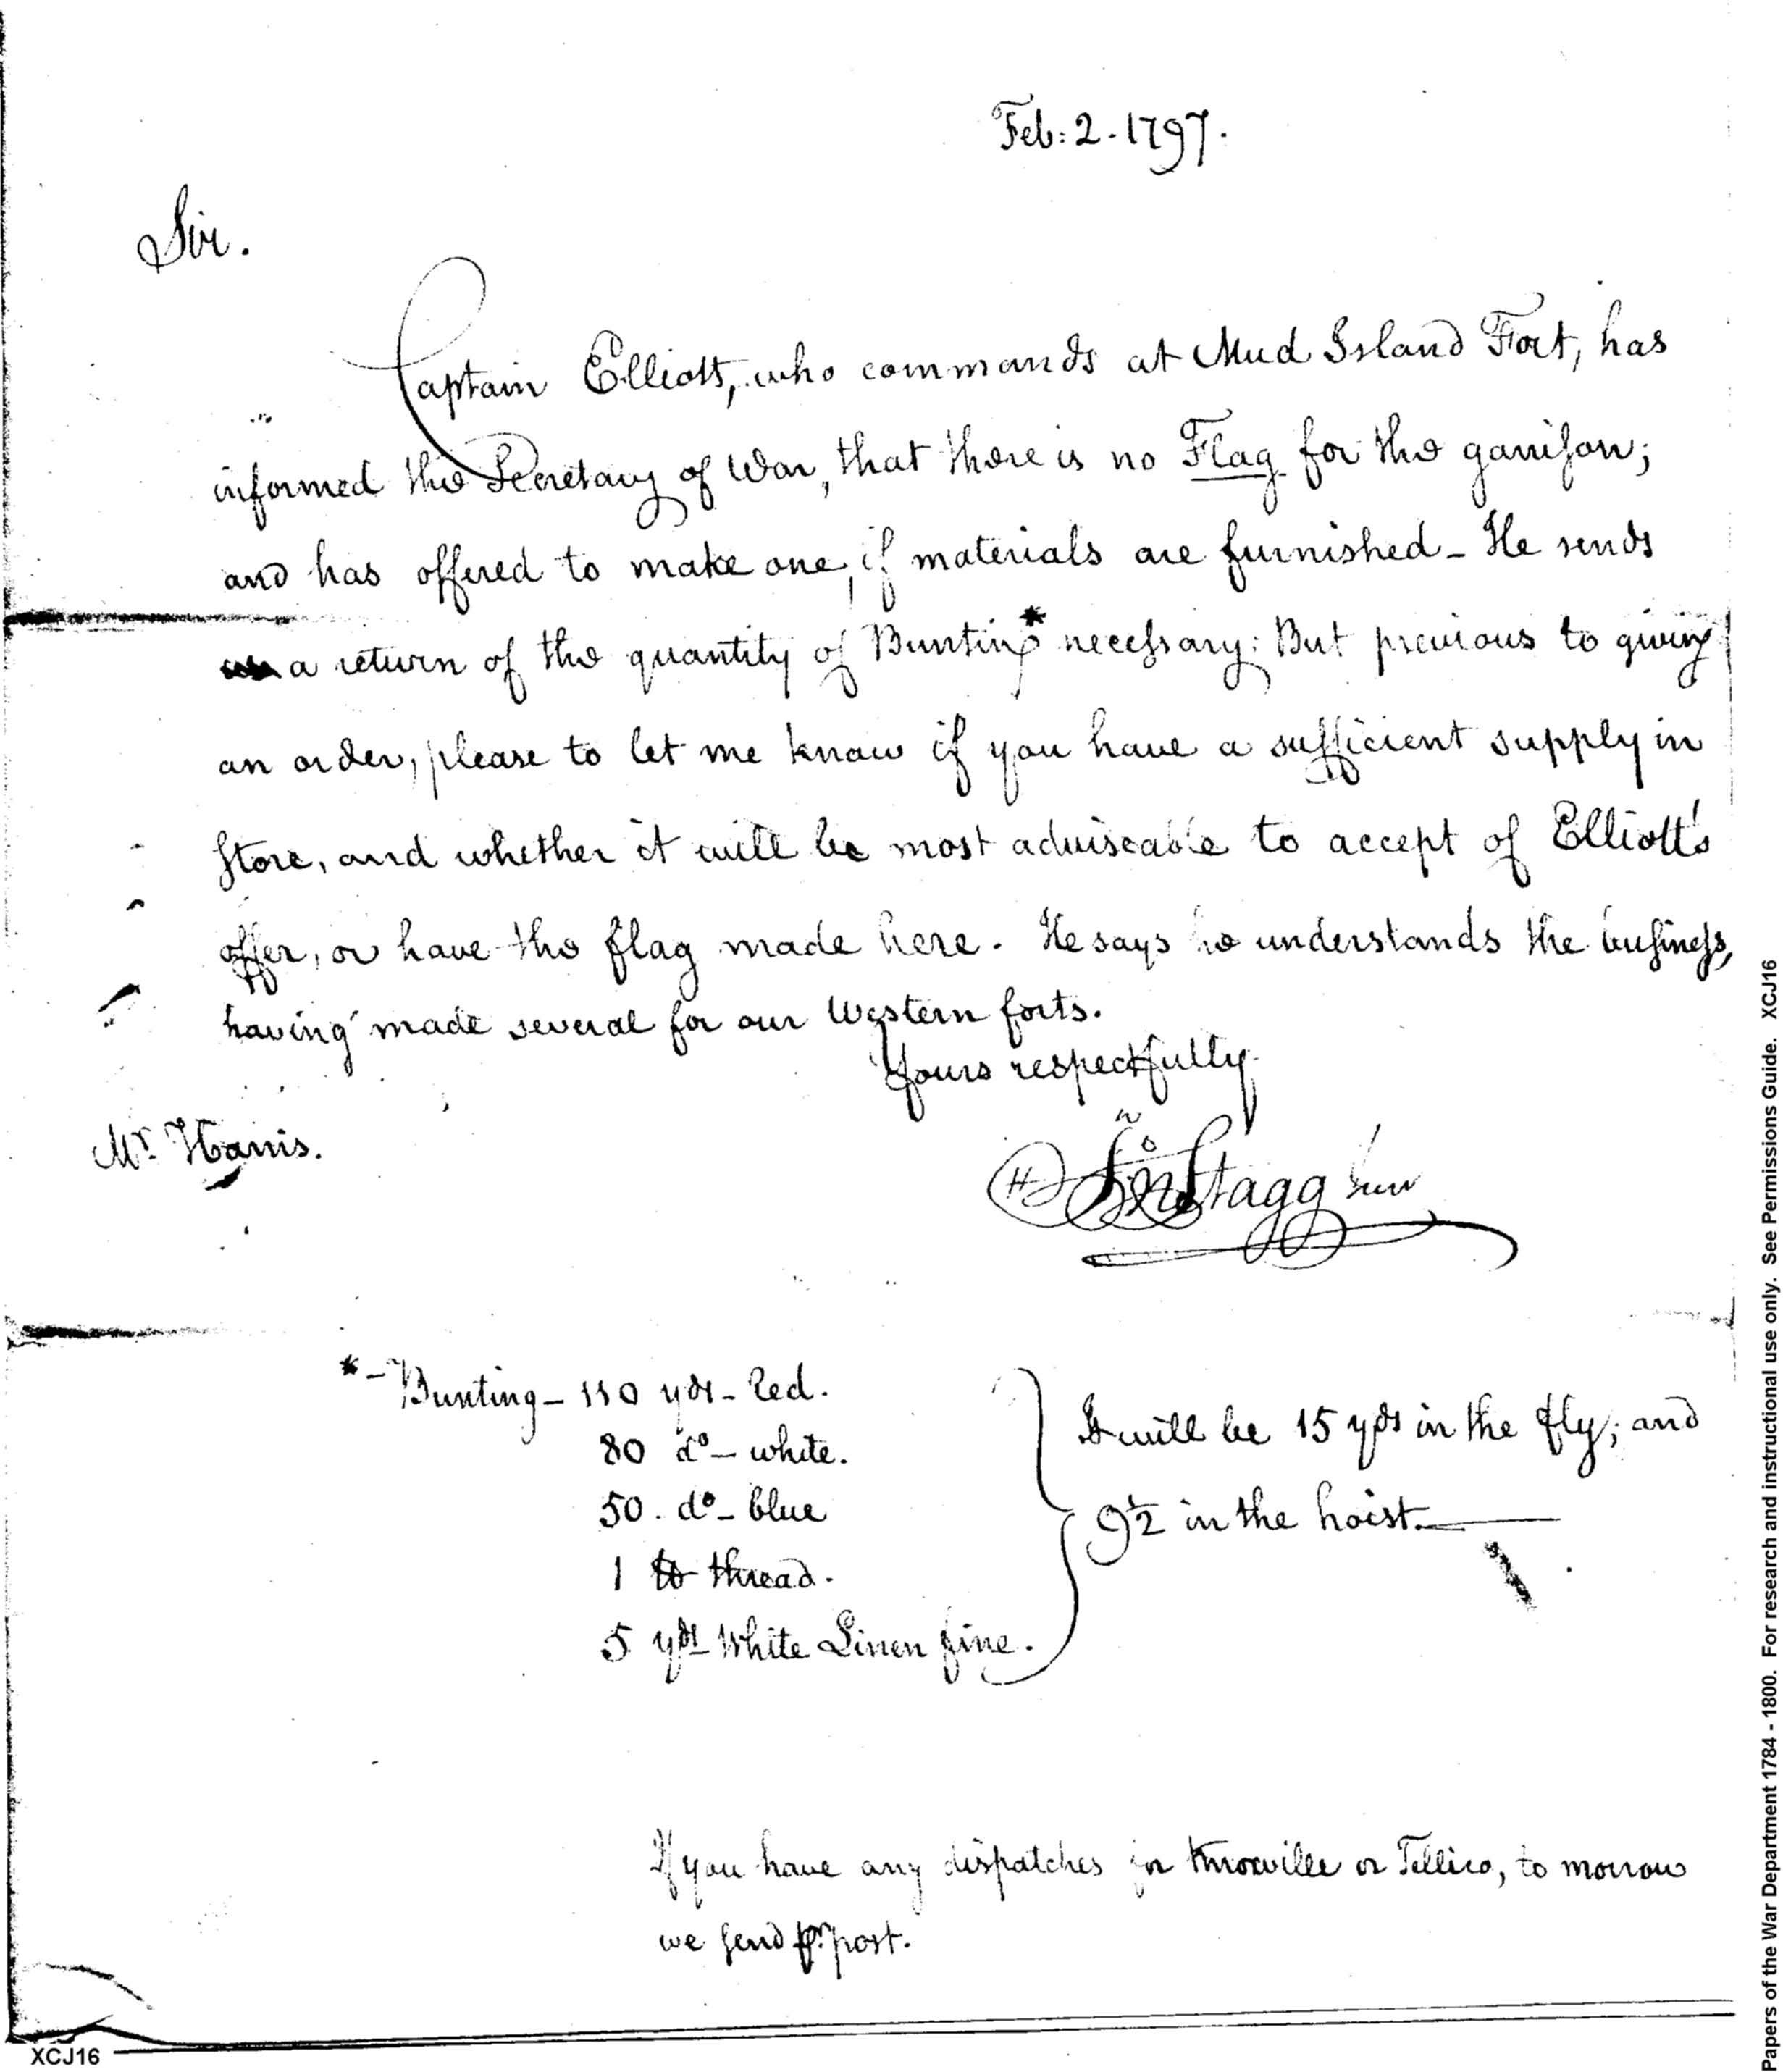 Feb: 2. 1797.
Sir.
Captain Elliott, who commands at Mud Island Fort, has
informed the Secretary of War, that there is no Flag for the garrison;
and has offered to make one, if materials are furnished - He sends
a return of the quantity of Bunting* necessary: But previous to giving
an order, please to let me know if you have a sufficient supply in
Store, and whether it will be most adviseable to accept of Elliott's
offer, or have the flag made here. He says he understands the business,
having made several for our Western forts.
Yours respectfully
Mr Harris.
Jno Stagg Junr
* - Bunting - 110 yds - Red.
80 do - white.
50. do - blue
1 lb thread.
5 yds White Linen fine.
It will be 15 yds in the fly; and
9 1/2 in the hoist.
If you have any dispatches for Knoxville or Tellico, to morrow
we send pr. post.
XCJ16
Papers of the War Department 1784 - 1800. For research and instructional use only. See Permissions Guide. XCJ16